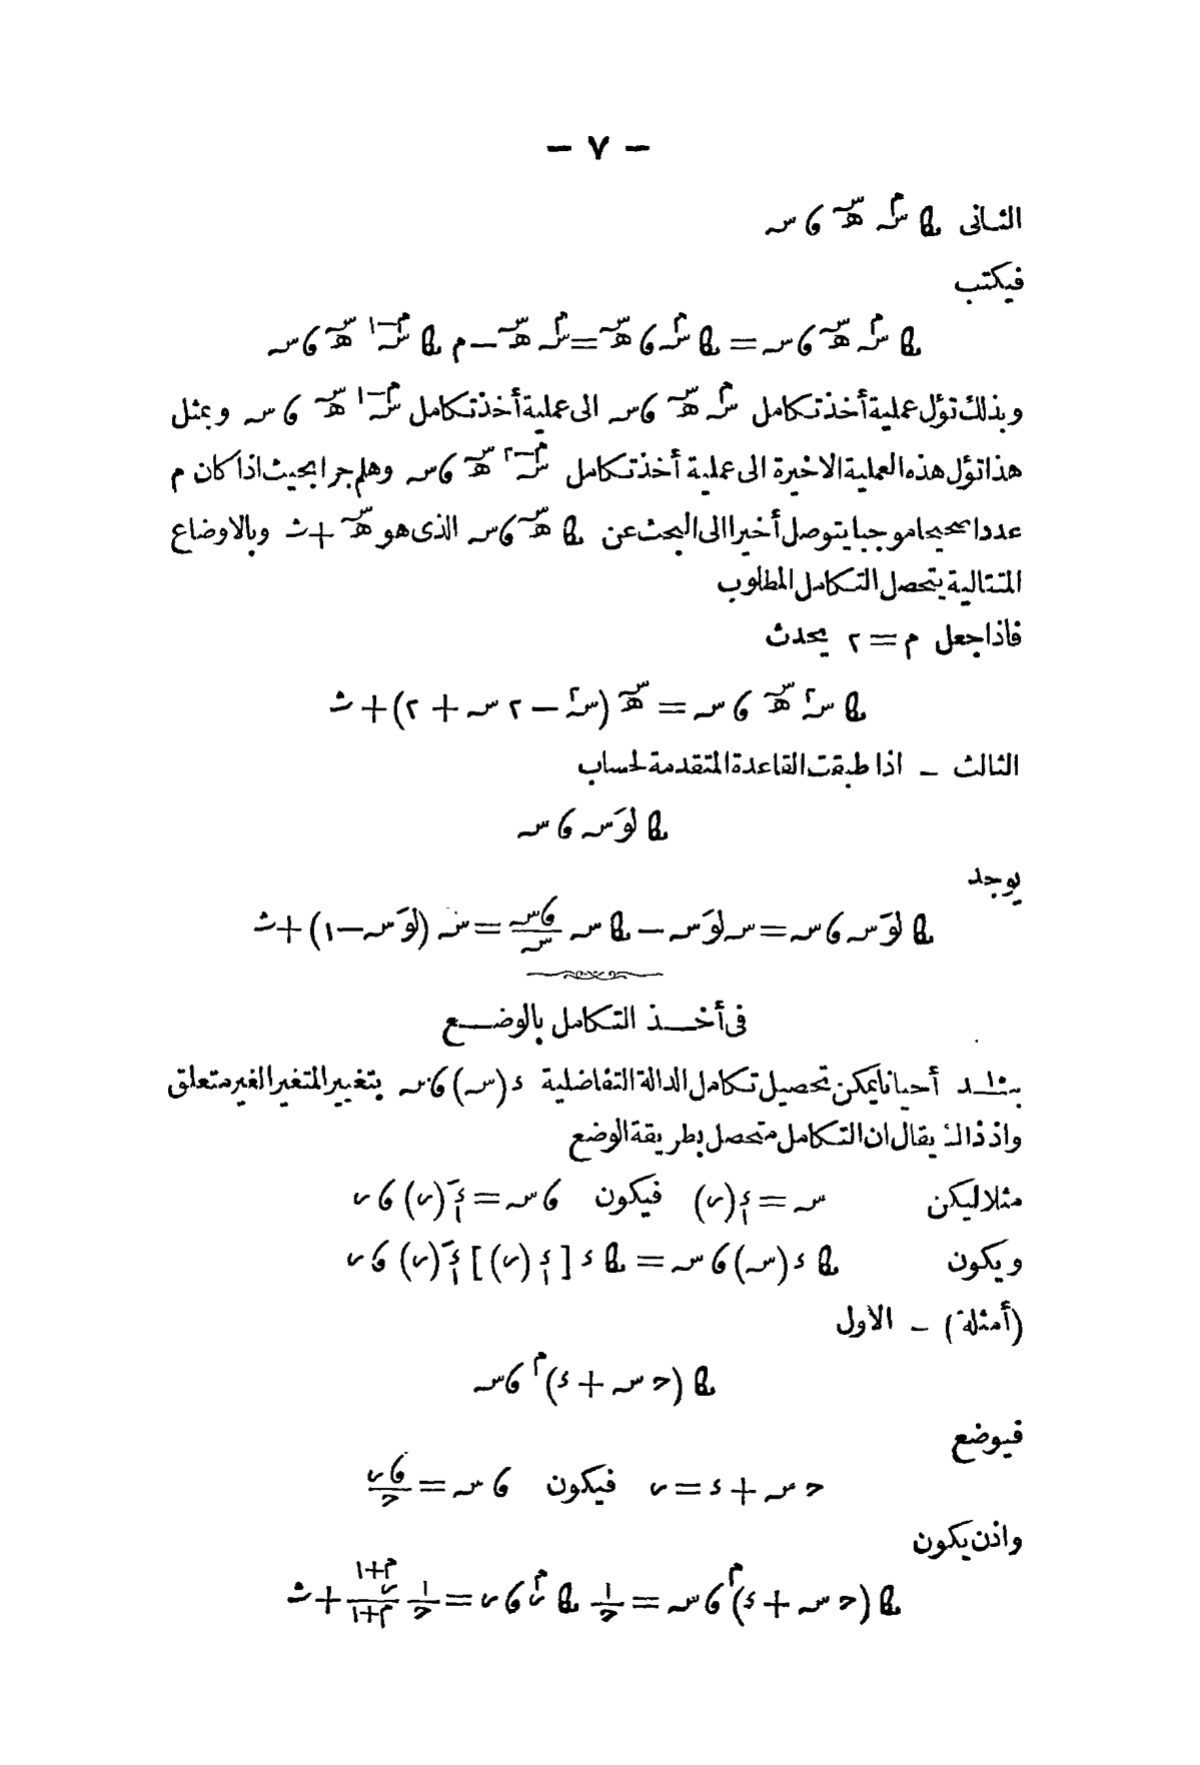 - ٧ -
الثانى ﻬﺎ س^م ه^س ء س
فيكتب
ﻬﺎ س^م ه^س ء س = ﻬﺎ س^م ء ه^س = س^م ه^س - م ﻬﺎ س^(م-١) ه^س ء س
وبذلك تؤل عملية أخذ تكامل س^م ه^س ء س الى عملية أخذ تكامل س^(م-١) ه^س ء س وبمثل
هذا تؤل هذه العملية الاخيرة الى عملية أخذ تكامل س^(م-٢) ه^س ء س وهلم جرا بحيث اذا كان م
عددا صحيحا موجبا يتوصل أخيرا الى البحث عن ﻬﺎ ه^س ء س الذى هو ه^س + ث وبالاوضاع
المتتالية يتحصل التكامل المطلوب
فاذا جعل م = ٢ يحدث
ﻬﺎ س^٢ ه^س ء س = ه^س (س^٢ - ٢ س + ٢) + ث
الثالث - اذا طبقت القاعدة المتقدمة لحساب
ﻬﺎ لوَ س ء س
يوجد
ﻬﺎ لوَ س ء س = س لوَ س - ﻬﺎ س ء س/س = س (لوَ س - ١) + ث
فى أخذ التكامل بالوضع
أحيانا يمكن تحصيل تكامل الدالة التفاضلية د (س) ء س بتغيير المتغير الغير متعلق
واذ ذاك يقال ان التكامل متحصل بطريقة الوضع
مثلا ليكن س = د١ (ں) فيكون ء س = دَ١ (ں) ء ں
ويكون ﻬﺎ د (س) ء س = ﻬﺎ د [د١ (ں)] دَ١ (ں) ء ں
(أمثلة) - الاول
ﻬﺎ (ح س + د)^م ء س
فيوضع
ح س + د = ں فيكون ء س = ء ں/ح
واذن يكون
ﻬﺎ (ح س + د)^م ء س = ١/ح ﻬﺎ ں^م ء ں = ١/ح ں^(م+١)/(م+١) + ث